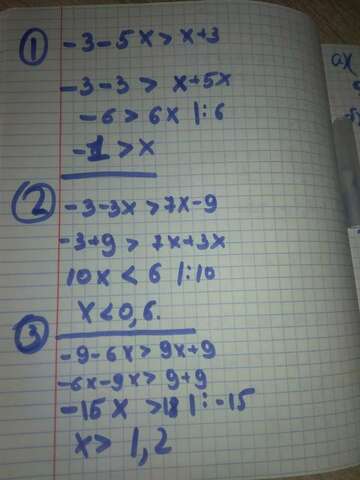 1 -3-5x>x+3
-3-3 > x+5x
-6>6x |:6
-1 >x
2 -3-3x>7x-9
-3+9 > 7x+3x
10x < 6 |:10
x<0,6.
3 -9-6x>9x+9
-6x-9x> 9+9
-15x >18 |:-15
x> 1,2
ax